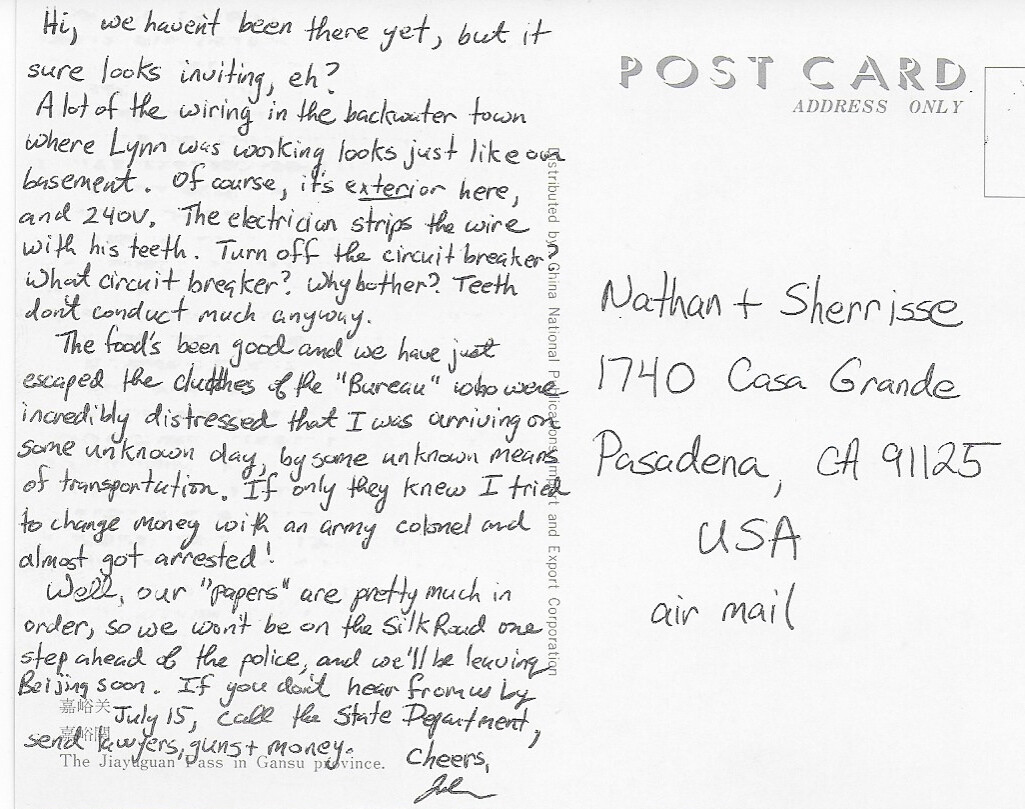 Hi, we haven't been there yet, but it
sure looks inviting, eh?
A lot of the wiring in the backwater town
where Lynn was working looks just like our
basement. Of course, it's exterior here,
and 240V. The electrician strips the wire
with his teeth. Turn off the circuit breaker?
What circuit breaker? Why bother? Teeth
don't conduct much anyway.
The food's been good and we have just
escaped the clutches of the "Bureau" who were
incredibly distressed that I was arriving on
some unknown day, by some unknown means
of transportation. If only they knew I tried
to change money with an army colonel and
almost got arrested!
Well, our "papers" are pretty much in
order, so we won't be on the Silk Road one
step ahead of the police, and we'll be leaving
Beijing soon. If you don't hear from us by
July 15, call the State Department,
send lawyers, guns + money.
Cheers,
嘉峪关
嘉峪関
The Jiayuguan Pass in Gansu province.
Distributed by China National Publications Import and Export Corporation
POST CARD
ADDRESS ONLY
Nathan + Sherrisse
1740 Casa Grande
Pasadena, CA 91125
USA
air mail